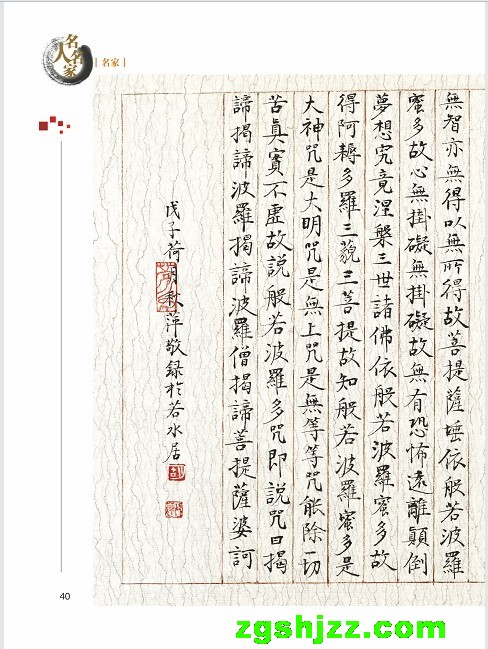 名人名家
| 名家 |
無智亦無得以無所得故菩提薩埵依般若波羅
蜜多故心無掛礙無掛礙故無有恐怖遠離顛倒
夢想究竟涅槃三世諸佛依般若波羅蜜多故
得阿耨多羅三藐三菩提故知般若波羅蜜多是
大神咒是大明咒是無上咒是無等等咒能除一切
苦真實不虛故説般若波羅多咒即説咒曰揭
諦揭諦波羅揭諦波羅僧揭諦菩提薩婆訶
戊子荷月秋萍敬録於若水居
40
zgshjzz.com